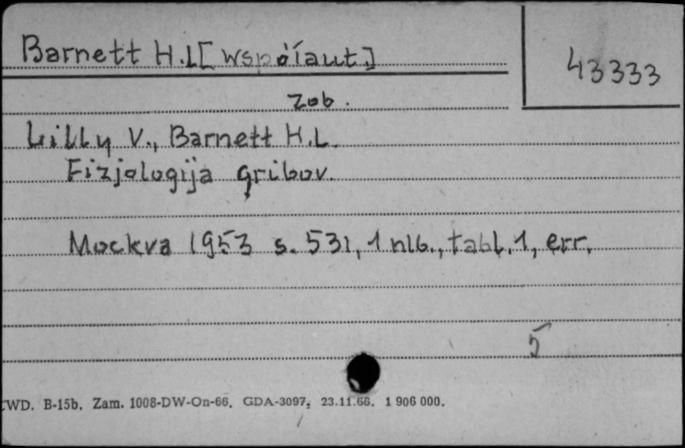 Barnett H.L[współaut.]
43333
zob.
Lilly V., Barnett H.L.
Fizjologija gribov.
Mockva 1953 s. 531, 1 nlb., tabl. 1, err.
5
WD. B-15b. Zam. 1008-DW-On-66. GDA-3097, 23.11.66. 1 906 000.